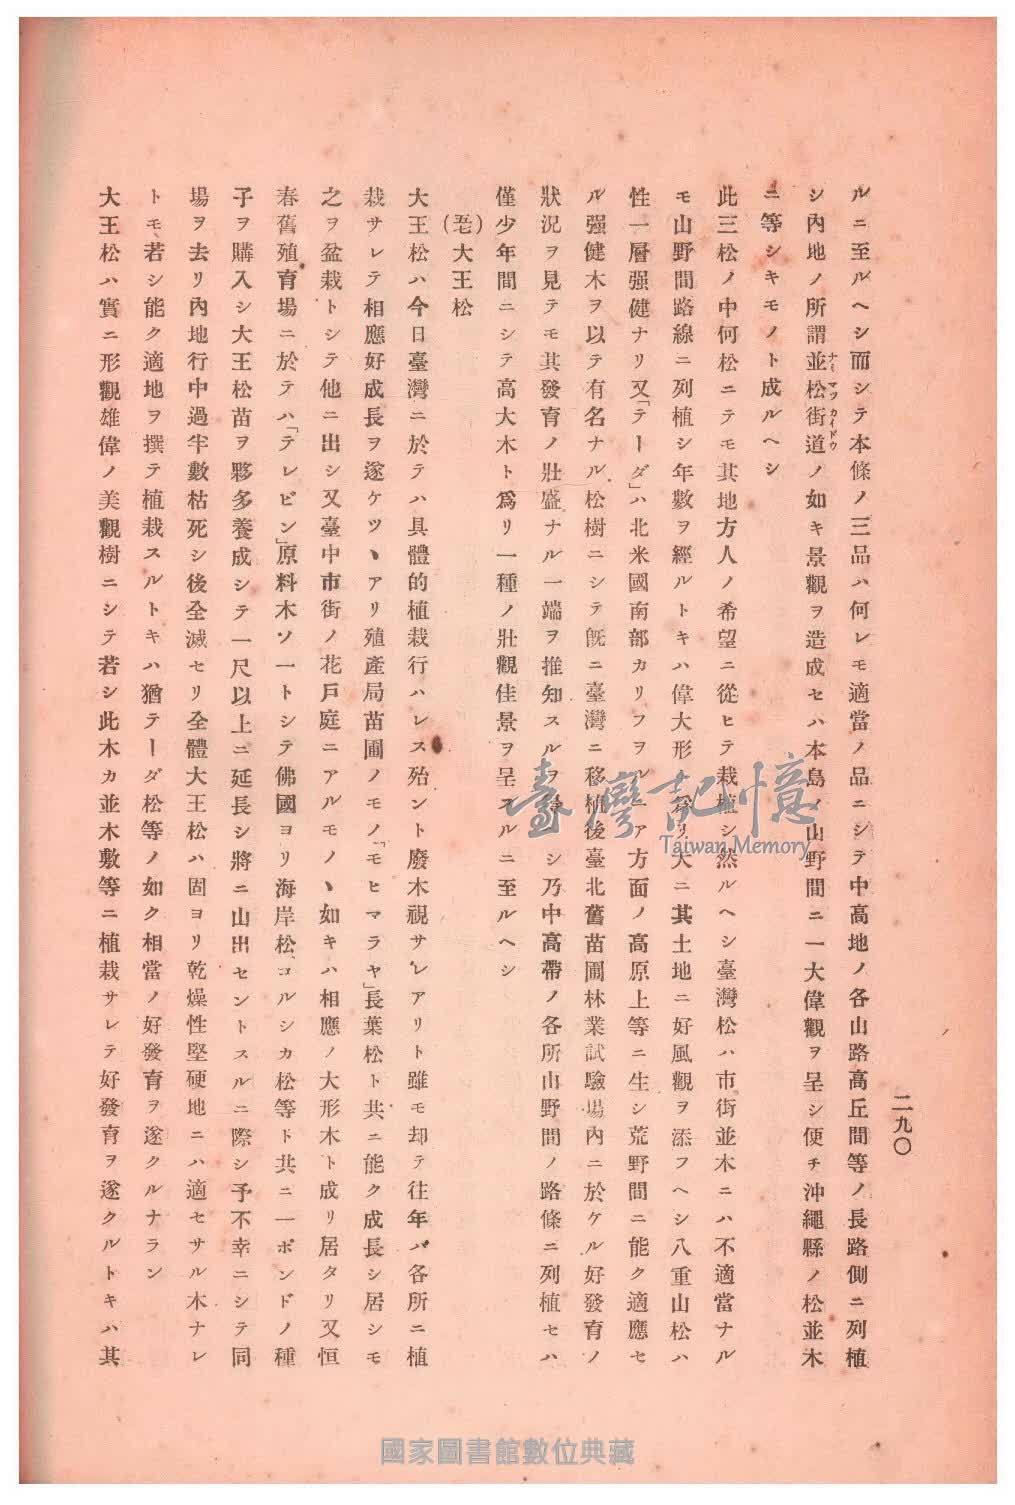 二九〇
ルニ至ルヘシ而シテ本條ノ三品ハ何レモ適當ノ品ニシテ中高地ノ各山路高丘間等ノ長路側ニ列植
シ內地ノ所謂並松街道ノ如キ景觀ヲ造成セハ本島ノ山野間ニ一大偉觀ヲ呈シ便チ沖繩縣ノ松並木
ナミマツカイドウ
ニ等シキモノト成ルヘシ
此三松ノ中何松ニテモ其地方人ノ希望ニ從ヒテ栽植シ然ルヘシ臺灣松ハ市街並木ニハ不適當ナル
モ山野間路線ニ列植シ年數ヲ經ルトキハ偉大形ト爲リ大ニ其土地ニ好風觀ヲ添フヘシ八重山松ハ
性一層强健ナリ又「テーダ」ハ北米國南部カリフヲルニア方面ノ高原上等ニ生シ荒野間ニ能ク適應セ
ル强健木ヲ以テ有名ナル松樹ニシテ旣ニ臺灣ニ移植後臺北舊苗圃林業試驗場內ニ於ケル好發育ノ
狀況ヲ見テモ其發育ノ壯盛ナル一端ヲ推知スルヲ シ乃中高帶ノ各所山野間ノ路條ニ列植セハ
僅少年間ニシテ高大木ト爲リ一種ノ壯觀佳景ヲ呈スルニ至ルヘシ
大王松
大王松ハ今日臺灣ニ於テハ具體的植栽行ハレス殆ント廢木視サレアリト雖モ却テ往年ハ各所ニ植
栽サレテ相應好成長ヲ遂ケツヽアリ殖產局苗圃ノモノ「モヒマラヤ」長葉松ト共ニ能ク成長シ居シモ
之ヲ盆栽トシテ他ニ出シ又臺中市街ノ花戶庭ニアルモノヽ如キハ相應ノ大形木ト成リ居タリ又恒
春舊殖育場ニ於テハ「テレビン」原料木ソ一トシテ佛國ヨリ海岸松、コルシカ松等ト共ニ一ポンドノ種
子ヲ購入シ大王松苗ヲ夥多養成シテ一尺以上ニ延長シ將ニ山出セントスルニ際シ予不幸ニシテ同
場ヲ去リ內地行中過半數枯死シ後全滅セリ全體大王松ハ固ヨリ乾燥性堅硬地ニハ適セサル木ナレ
トモ若シ能ク適地ヲ撰テ植栽スルトキハ猶テーダ松等ノ如ク相當ノ好發育ヲ遂クルナラン
大王松ハ實ニ形觀雄偉ノ美觀樹ニシテ若シ此木カ並木敷等ニ植栽サレテ好發育ヲ遂クルトキハ其
臺灣記憶
Taiwan Memory
國家圖書館數位典藏